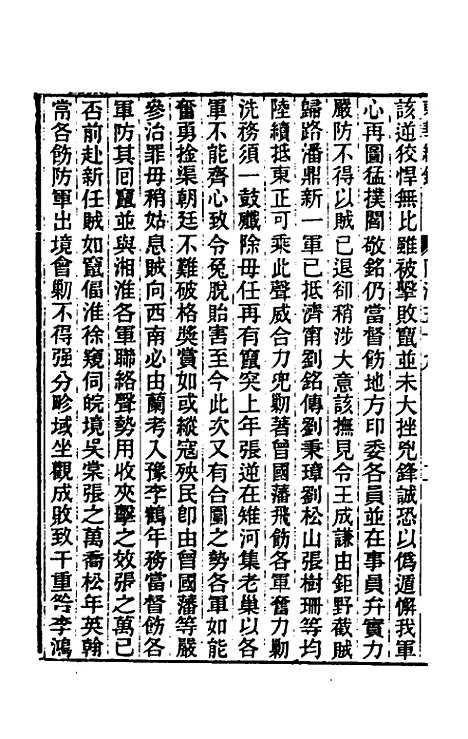 該逆狡悍無比雖被擊敗竄並未大挫兇鋒誠恐以僞遁懈我軍
心再圖猛撲閻敬銘仍當督飭地方印委各員並在事員弁實力
嚴防不得以賊已退卻稍涉大意該撫見令王成謙由鉅野截賊
歸路潘鼎新一軍已抵濟甯劉銘傳劉秉璋劉松山張樹珊等均
陸續抵東正可乘此聲威合力兜勦著曾國藩飛飭各軍奮力勦
洗務須一鼓殲除毋任再有竄突上年張逆在雉河集老巢以各
軍不能齊心致令兔脫貽害至今此次又有合圍之勢各軍如能
奮勇捡渠朝廷不難破格獎賞如或縱寇殃民卽由曾國藩等嚴
參治罪毋稍姑息賊向西南必由蘭考入豫李鶴年務當督飭各
軍防其回竄並與湘淮各軍聯絡聲勢用收夾擊之效張之萬已
否前赴新任賊如竄偪淮徐窺伺皖境吳棠張之萬喬松年英翰
當各飭防軍出境會勦不得强分畛域坐觀成敗致干重咎李鴻